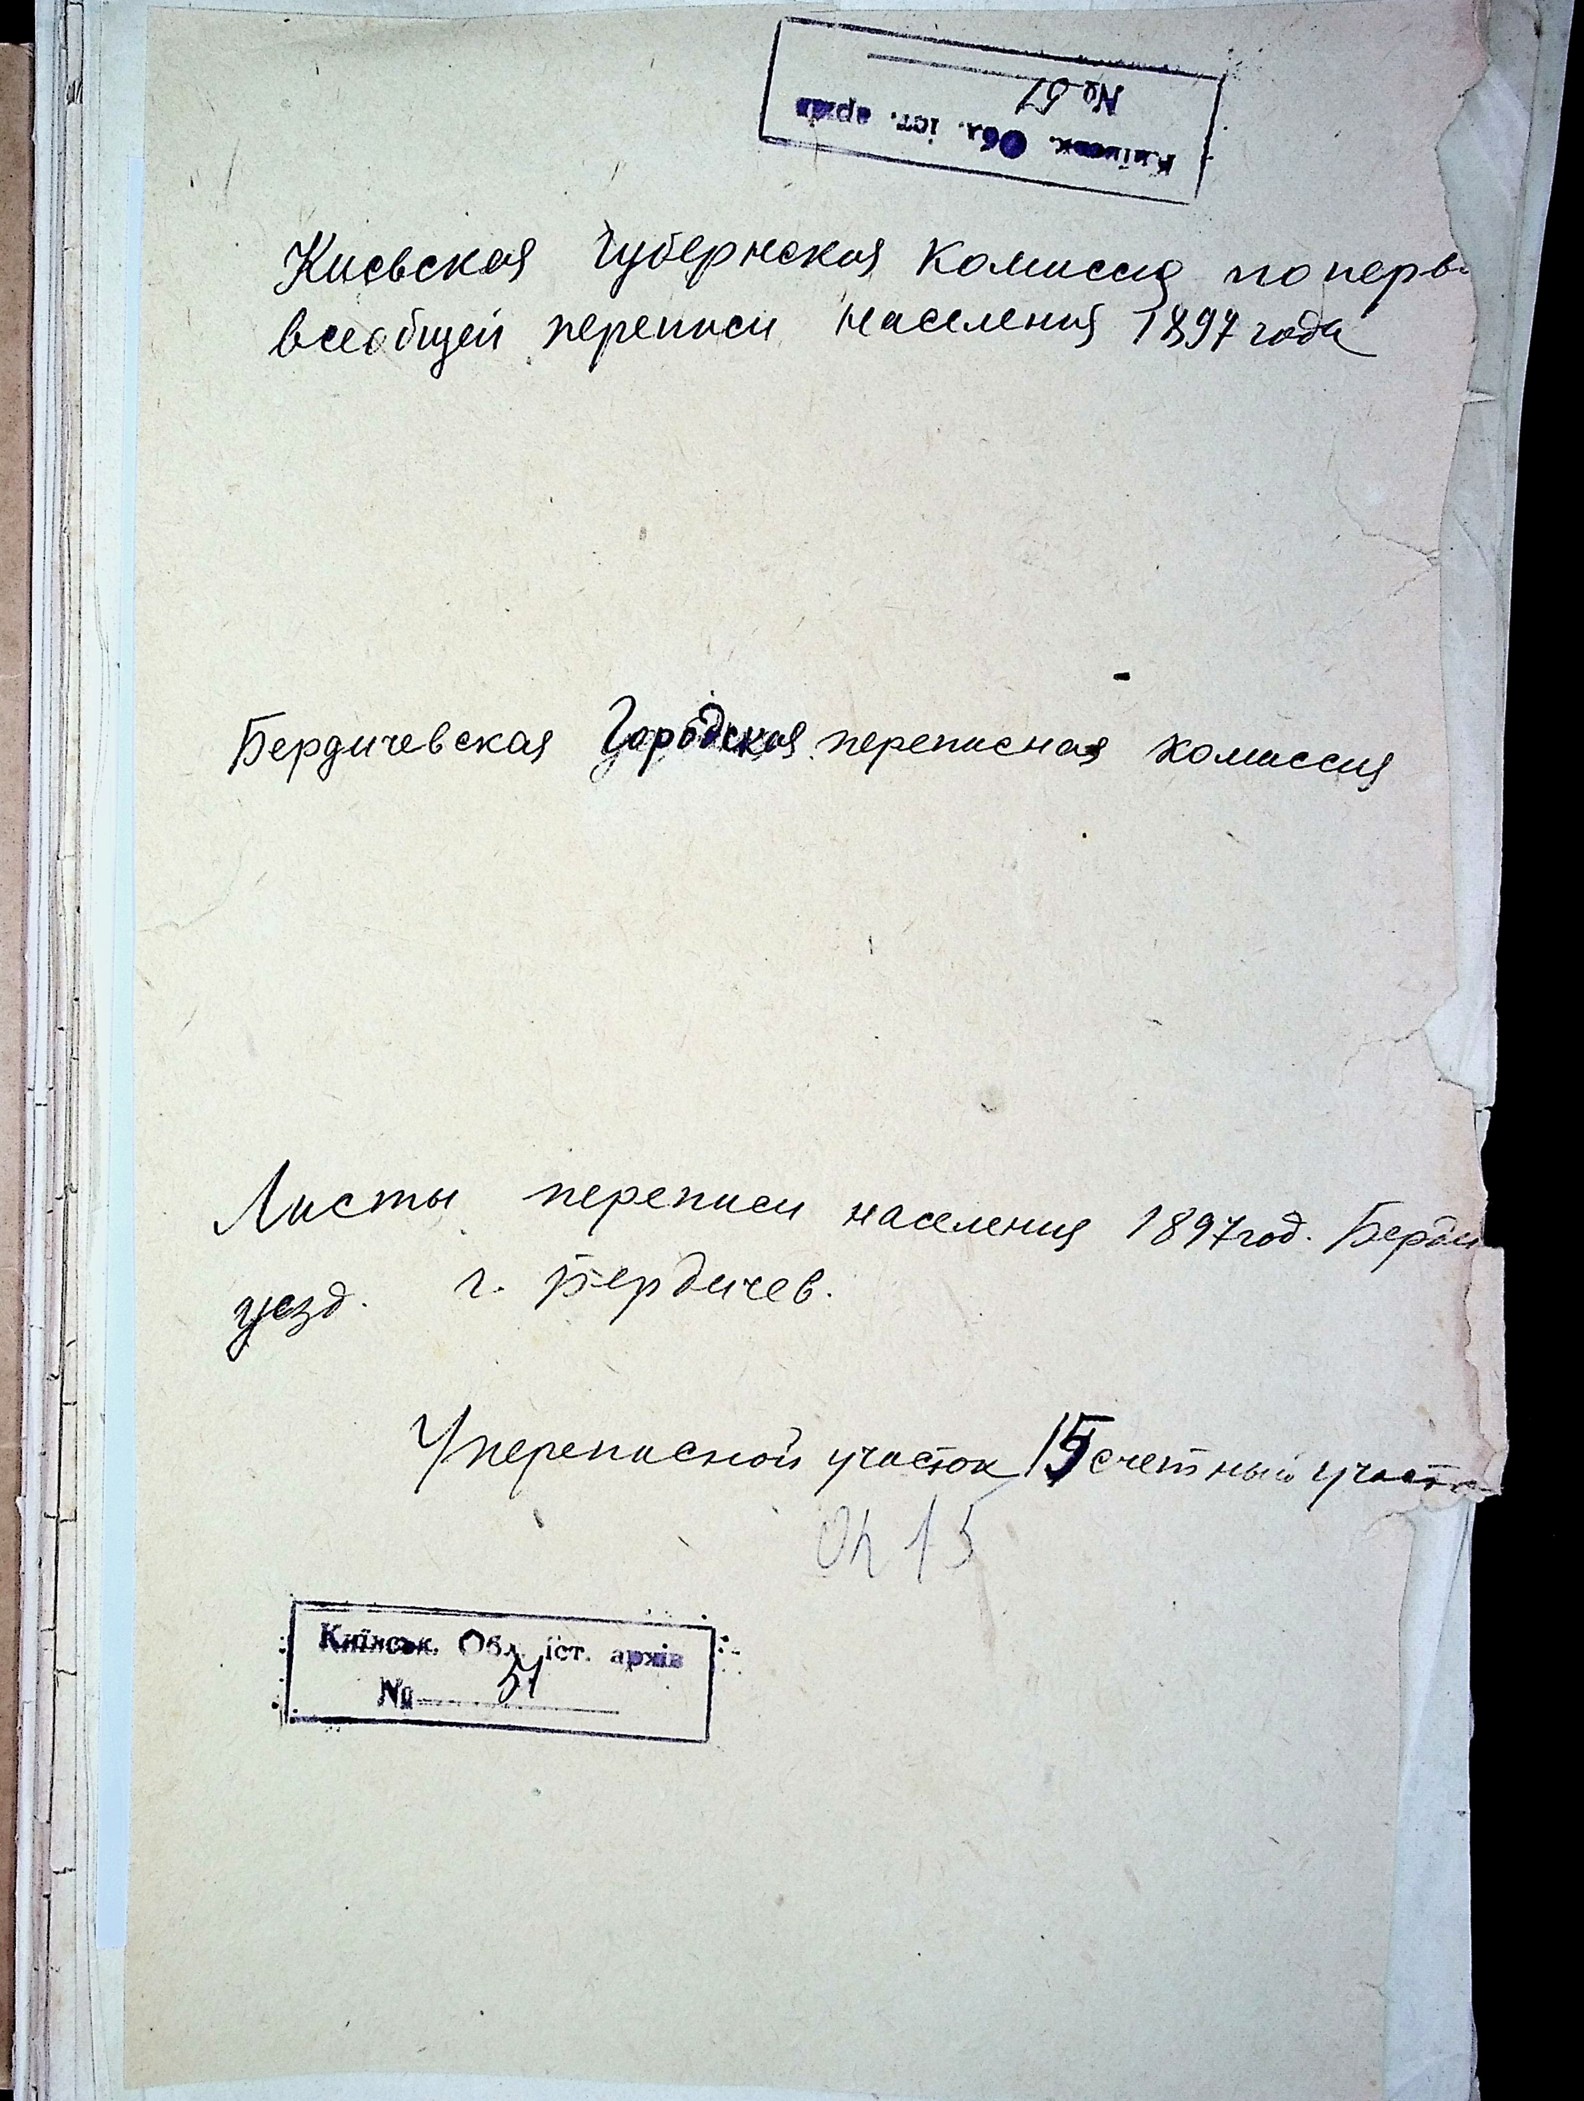 Київськ. Обл. іст. архів
№ 51
Киевская Губернская Комиссия по перв
всеобщей переписи населения 1897 года
Бердичевская Городская переписная комиссия
Листы переписи населения 1897 год. Берди
уезд. г. Бердичев.
переписной участок 15 счетный участо
оп 15
Київськ. Обл. іст. архів
№ 51